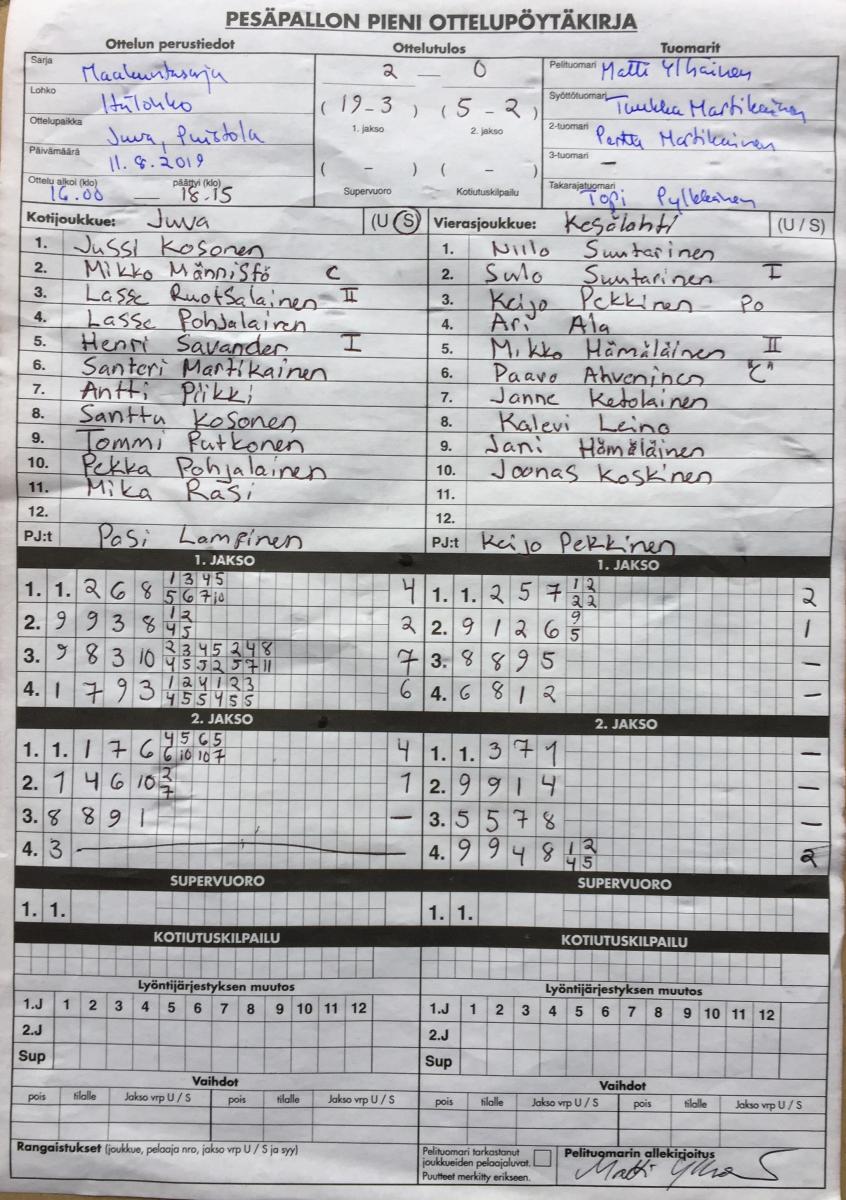 PESÄPALLON PIENI OTTELUPÖYTÄKIRJA
Ottelun perustiedot Ottelutulos Tuomarit
Sarja Maakuntasarja
Lohko Itälohko
Ottelupaikka Juva, Puistola
Päivämäärä 11.8.2019
Ottelu alkoi (klo) päättyi (klo)
16.00 — 18.15
2 — 0
( 19-3 ) ( 5-2 )
1. jakso 2. jakso
( - ) ( - )
Supervuoro Kotiutuskilpailu
Pelituomari Matti Ylhäinen
Syöttötuomari Tuukka Martikainen
2-tuomari Pertta Martikainen
3-tuomari —
Takarajatuomari Topi Pylkkänen
Kotijoukkue: Juva (U/S)
1. Jussi Kosonen
2. Mikko Männistö C
3. Lasse Ruotsalainen II
4. Lasse Pohjalainen
5. Henri Savander I
6. Santeri Martikainen
7. Antti Piikki
8. Santtu Kosonen
9. Tommi Putkonen
10. Pekka Pohjalainen
11. Mika Räsi
12.
PJ:t Pasi Lampinen
Vierasjoukkue: Kesälahti (U/S)
1. Niilo Suntarinen
2. Sulo Suntarinen I
3. Keijo Pekkinen Po
4. Ari Ala
5. Mikko Hämäläinen II
6. Paavo Ahveninen "C"
7. Janne Ketolainen
8. Kalevi Leino
9. Jani Hämäläinen
10. Joonas Koskinen
11.
12.
PJ:t Keijo Pekkinen
1. JAKSO
1. 1. 2 6 8 1 3 4 5 4
5 6 7 10
2. 9 9 3 8 1 2 2
4 5
3. 9 8 3 10 2 3 4 5 2 4 8 7
4 5 5 2 5 7 11
4. 1 7 9 3 1 2 4 1 2 3 6
4 5 5 4 5 5
1. JAKSO
1. 1. 2 5 7 1 2 2
2 2
2. 9 1 2 6 9 1
5
3. 8 8 9 5 —
4. 6 8 1 2 —
2. JAKSO
1. 1. 1 7 6 4 5 6 5 4
6 10 10 7
2. 1 4 6 10 2 1
7
3. 8 8 9 1 —
4. 3 —
2. JAKSO
1. 1. 3 7 1 —
2. 9 9 1 4 —
3. 5 5 7 8 —
4. 9 9 4 8 1 2 2
4 5
SUPERVUORO SUPERVUORO
1. 1. 1. 1.
KOTIUTUSKILPAILU KOTIUTUSKILPAILU
Lyöntijärjestyksen muutos Lyöntijärjestyksen muutos
1.J 1 2 3 4 5 6 7 8 9 10 11 12 1.J 1 2 3 4 5 6 7 8 9 10 11 12
2.J 2.J
Sup Sup
Vaihdot Vaihdot
pois tilalle Jakso vrp U / S pois tilalle Jakso vrp U / S pois tilalle Jakso vrp U / S pois tilalle Jakso vrp U / S
Rangaistukset (joukkue, pelaaja nro, jakso vrp U / S ja syy)
Pelituomari tarkastanut
joukkueiden pelaajaluvat.
Puutteet merkitty erikseen.
Pelituomarin allekirjoitus